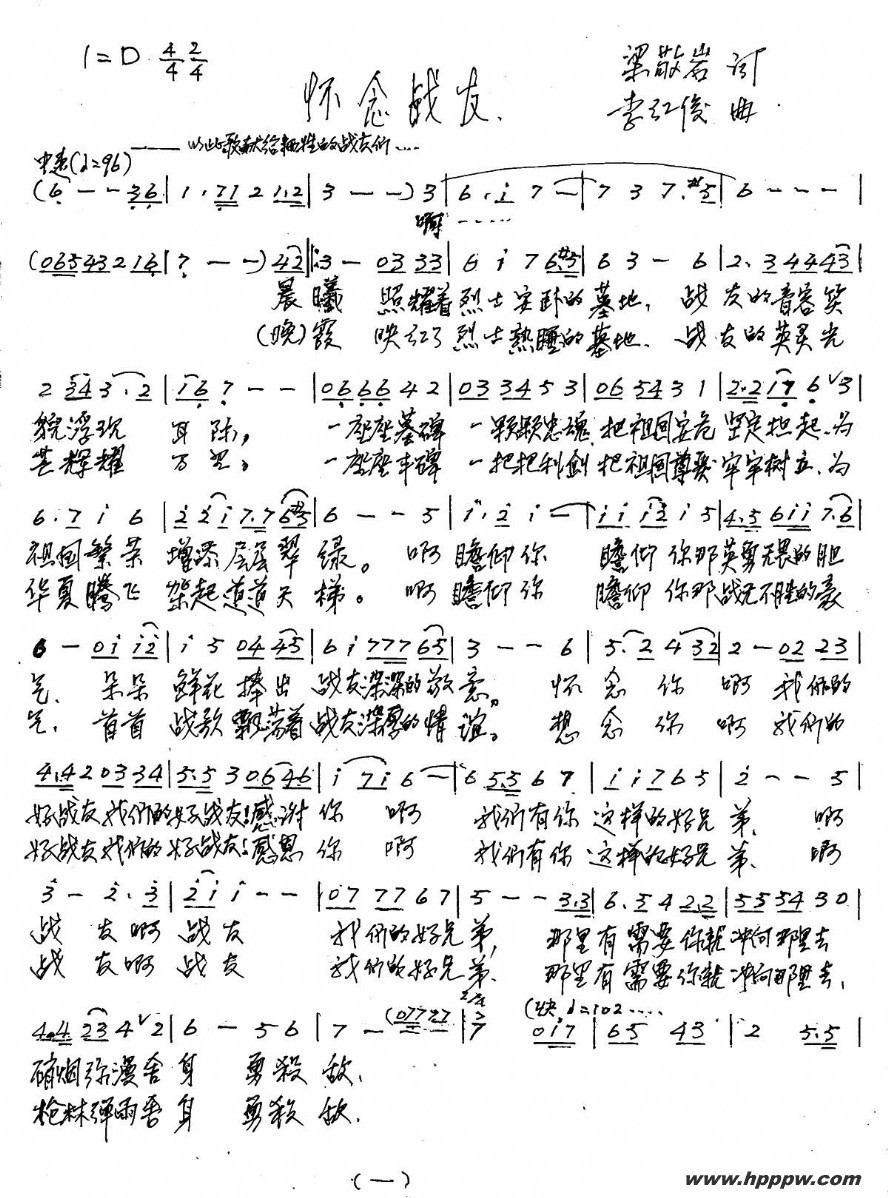 1=D 4/4 2/4
怀念战友
梁敬岩 词
李红俊 曲
中速(♩=96) ——以此歌献给牺牲的战友们……
(6 - - 36 | 1. 71 2 1.2 | 3 - - ) 3 | 6. i 7 - | 7 3 7. #5 | 6 - - - |
啊……
(06543216 | 7 - - ) 42 |: 3 - 03 33 | 6 i 7 6.#5 | 6 3 - 6 | 2. 3 4443 |
晨曦 照耀着烈士安卧的墓地, 战友的音容笑
(晚)霞 映红了烈士熟睡的墓地. 战友的英灵光
2 34 3. 2 | i6 7 - - | 0666 4 2 | 033453 | 065431 | 2.2 i7 6 ∨3 |
貌浮现 耳际, 一座座墓碑 一颗颗忠魂, 把祖国安危 坚定担起、为
芒辉耀 万里。 一座座丰碑 一把把利剑 把祖国尊严 牢牢树立、为
6. 7 i 6 | 2 2i 7.7 6#5 | 6 - - 5 | i. 2 i - | i i i2 i 5 | 4.5 6ii 7.6 |
祖国繁荣 增添层层翠绿。 啊 瞻仰你 瞻仰你那英勇无畏的胆
华夏腾飞 架起道道天梯。 啊 瞻仰你 瞻仰你那战无不胜的豪
6 - 0i i2 | i 5 04 45 | 6 i 777 65 | 3 - - 6 | 5. 2 4 32 | 2 - 02 23 |
气. 朵朵 鲜花捧出 战友深深的敬意。 怀念你 啊 我们的
气. 首首 战歌飘荡着战友深厚的情谊。 想念你 啊 我们的
4.42 0334 | 5.53 0646 | i 7i 6 - | 6 5.5 6 7 | i i7 6 5 | 2 - - 5 |
好战友我们的好战友!感谢你 啊 我们有你 这样的好兄弟. 啊
好战友我们的好战友!感恩你 啊 我们有你 这样的好兄弟. 啊
3 - 2. 3 | 2i i - - | 07 77 6 7 | 5 - - 3.3 | 6. 5 4 2.2 | 5554 3 0 |
战友啊 战友 我们的好兄弟, 那里有需要你就冲向那里去
战友啊 战友 我们的好兄弟. 那里有需要你就冲向那里去,
4.4 23 4 ∨2 | 6 - 5 6 | 7 - (07777 | 7 0i7 | 65 43 | 2 5.5 |
(快 ♩=102……
硝烟弥漫舍身 勇殺敌.
枪林弹雨舍身 勇殺敌.
(一)
www.hpppw.com